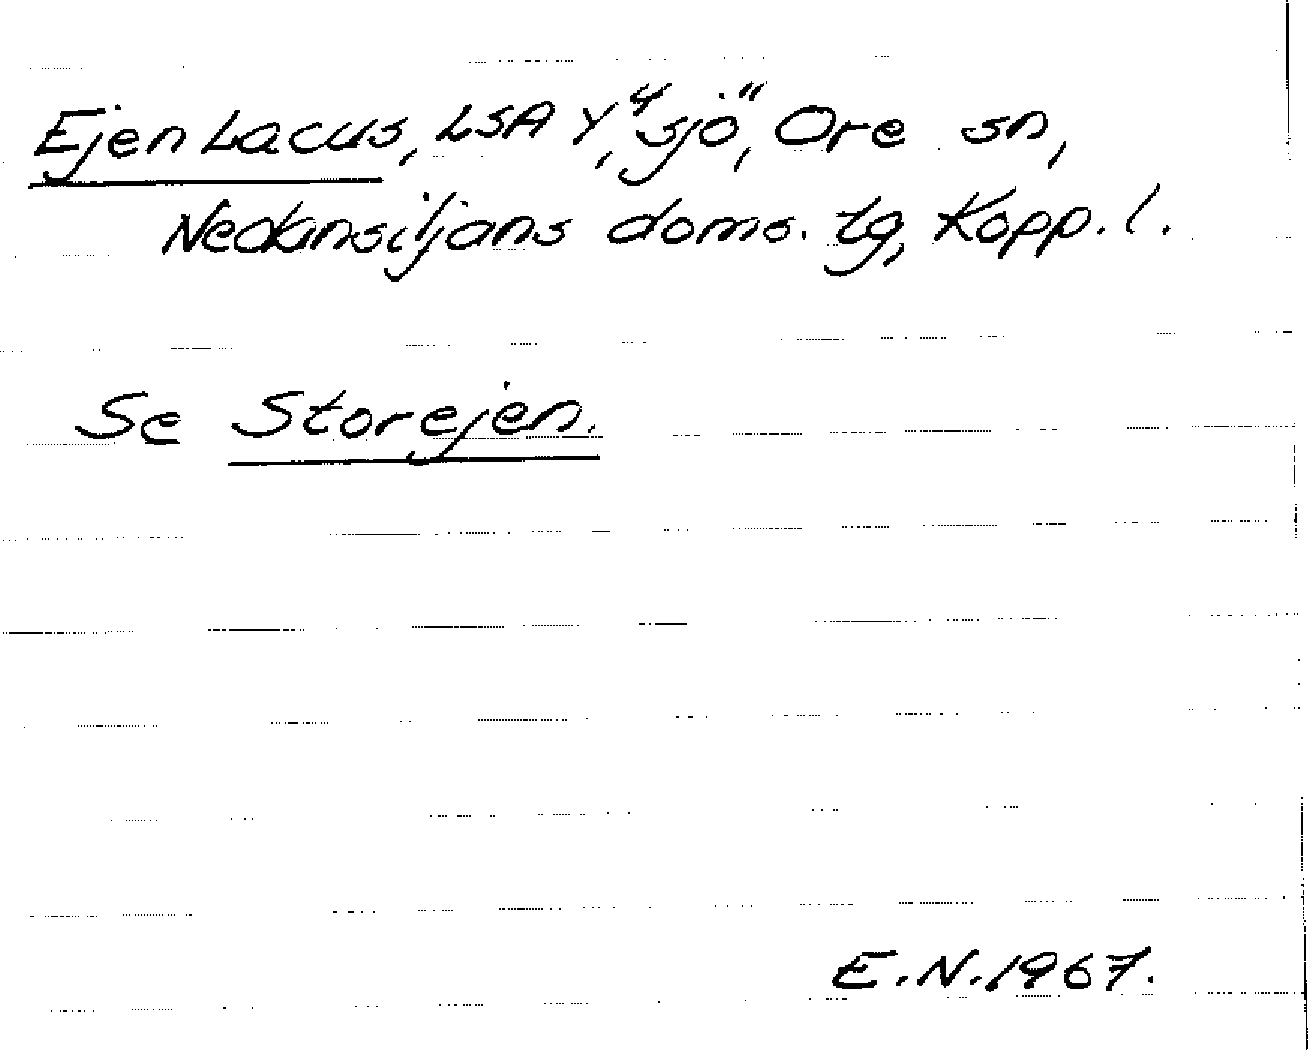 Ejen Lacus, LSA Y⁴, "sjö", Ore sn,
Nedansiljans doms. tg, Kopp. l.
Se Storejen.
E.N. 1967.